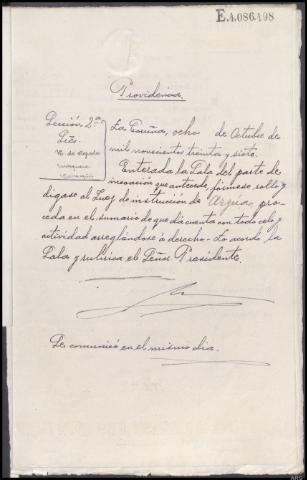 E.4.086.198
Providencia
Sección 2ª
Sres.
La Coruña, ocho de Octubre de
mil novecientos treinta y siete.
Enterada la Sala del parte de
incoación que antecede, fórmese rollo y
digase al Juez de instrucción de Arzúa, pro-
ceda en el sumario de que dá cuenta con todo celo y
actividad arreglándose á derecho. Lo acordó la
Sala y rubrica el Señor Presidente.
Se comunicó en el mismo dia.